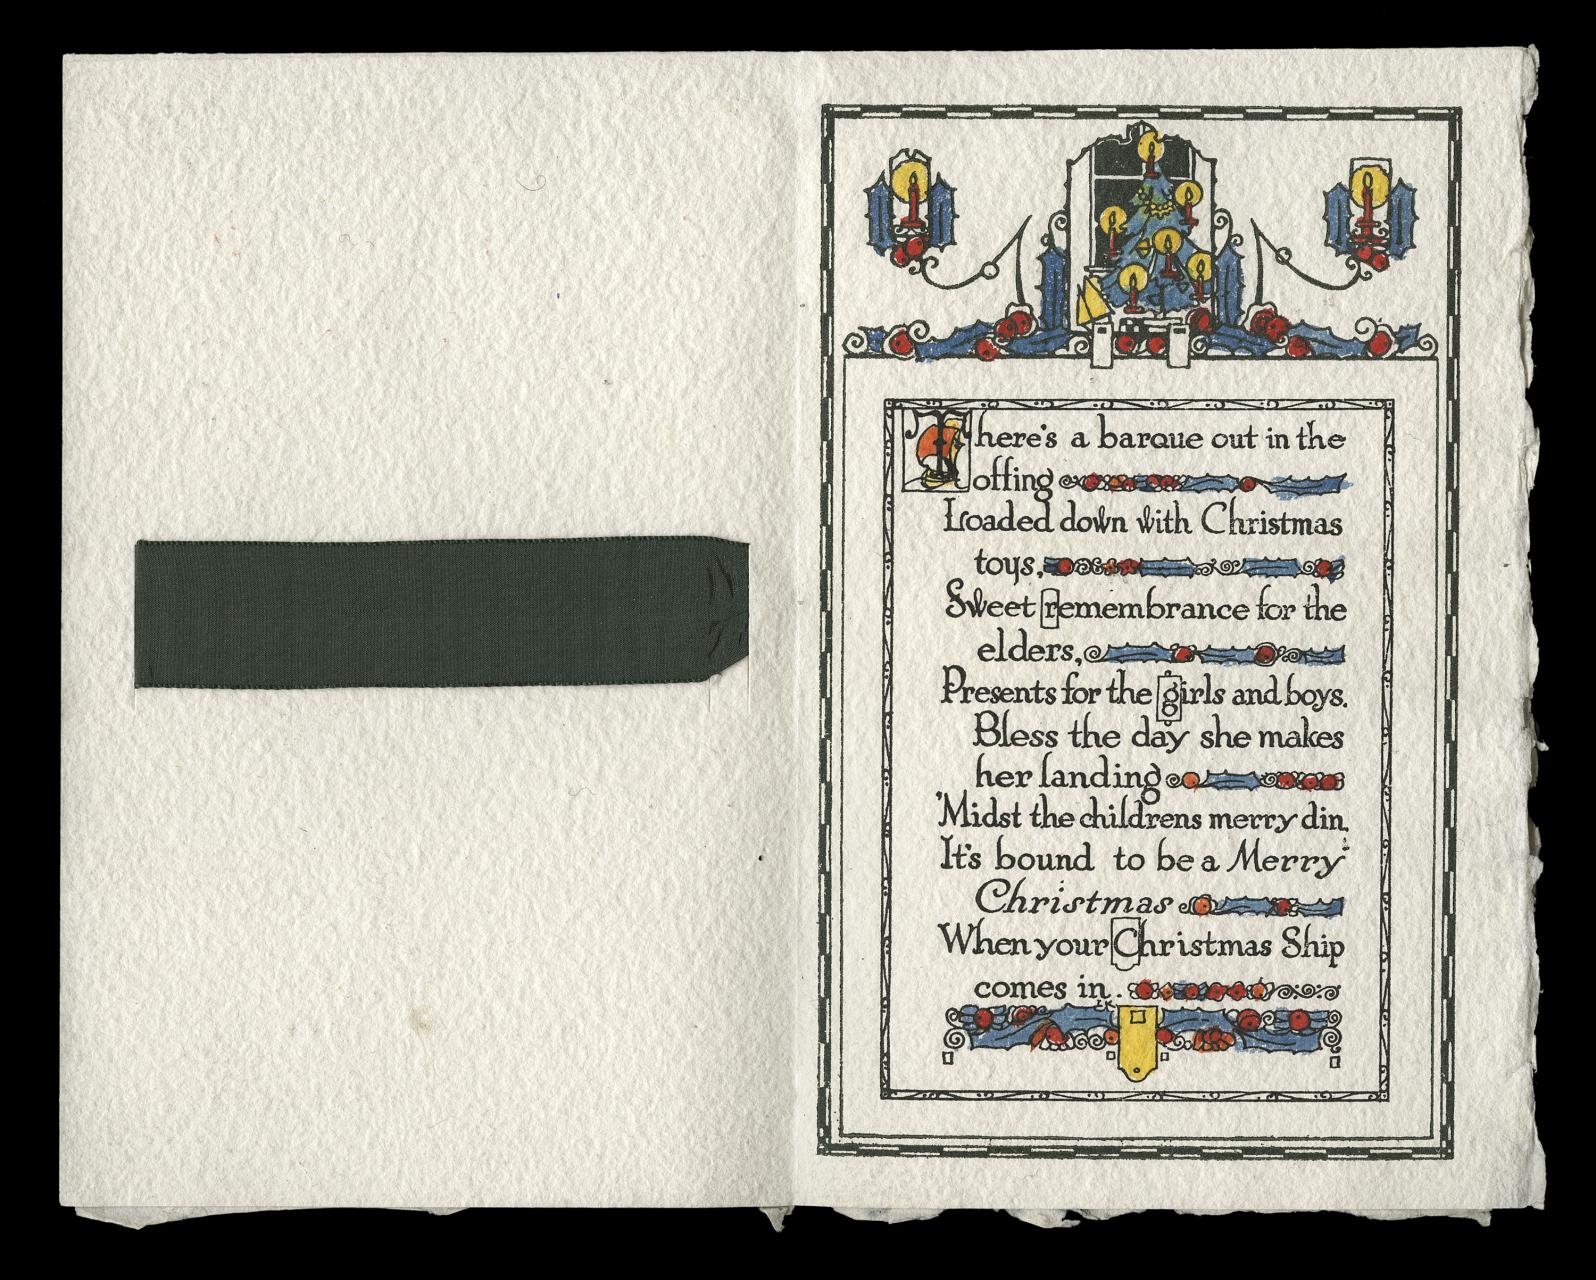 There's a barque out in the
offing
Loaded down with Christmas
toys,
Sweet remembrance for the
elders,
Presents for the girls and boys.
Bless the day she makes
her landing
'Midst the childrens merry din.
It's bound to be a Merry
Christmas
When your Christmas Ship
comes in.